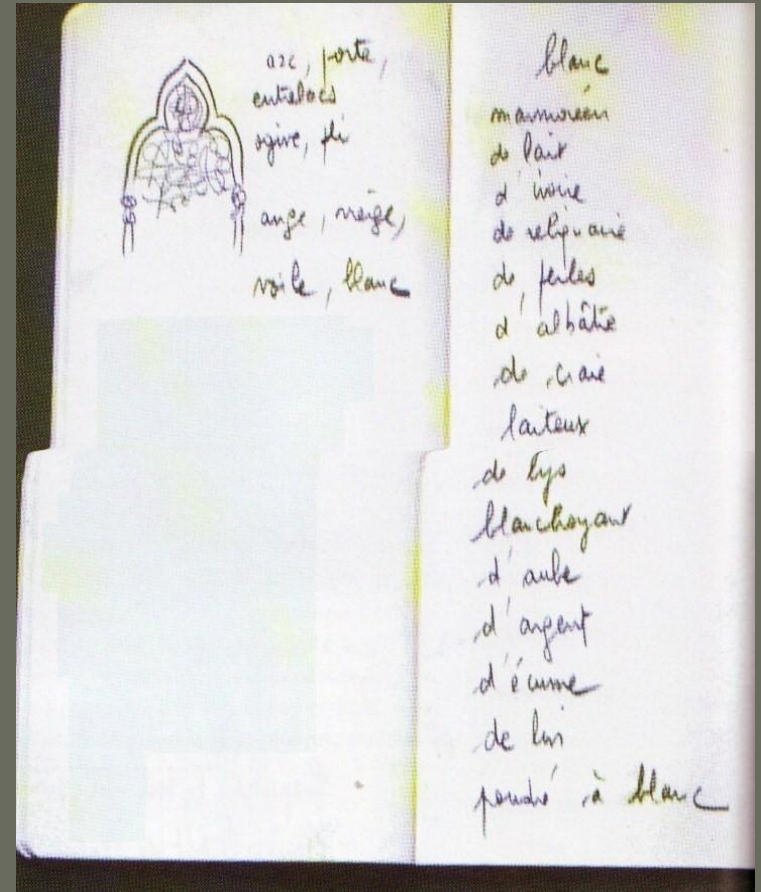 arc, porte,
entrelacs
ogive, pli
ange, neige,
voile, blanc
blanc
marmoréen
de lait
d'ivoire
de reliquaire
de perles
d'albâtre
de craie
laiteux
de lys
blanchoyant
d'aube
d'argent
d'écume
de lin
poudré à blanc